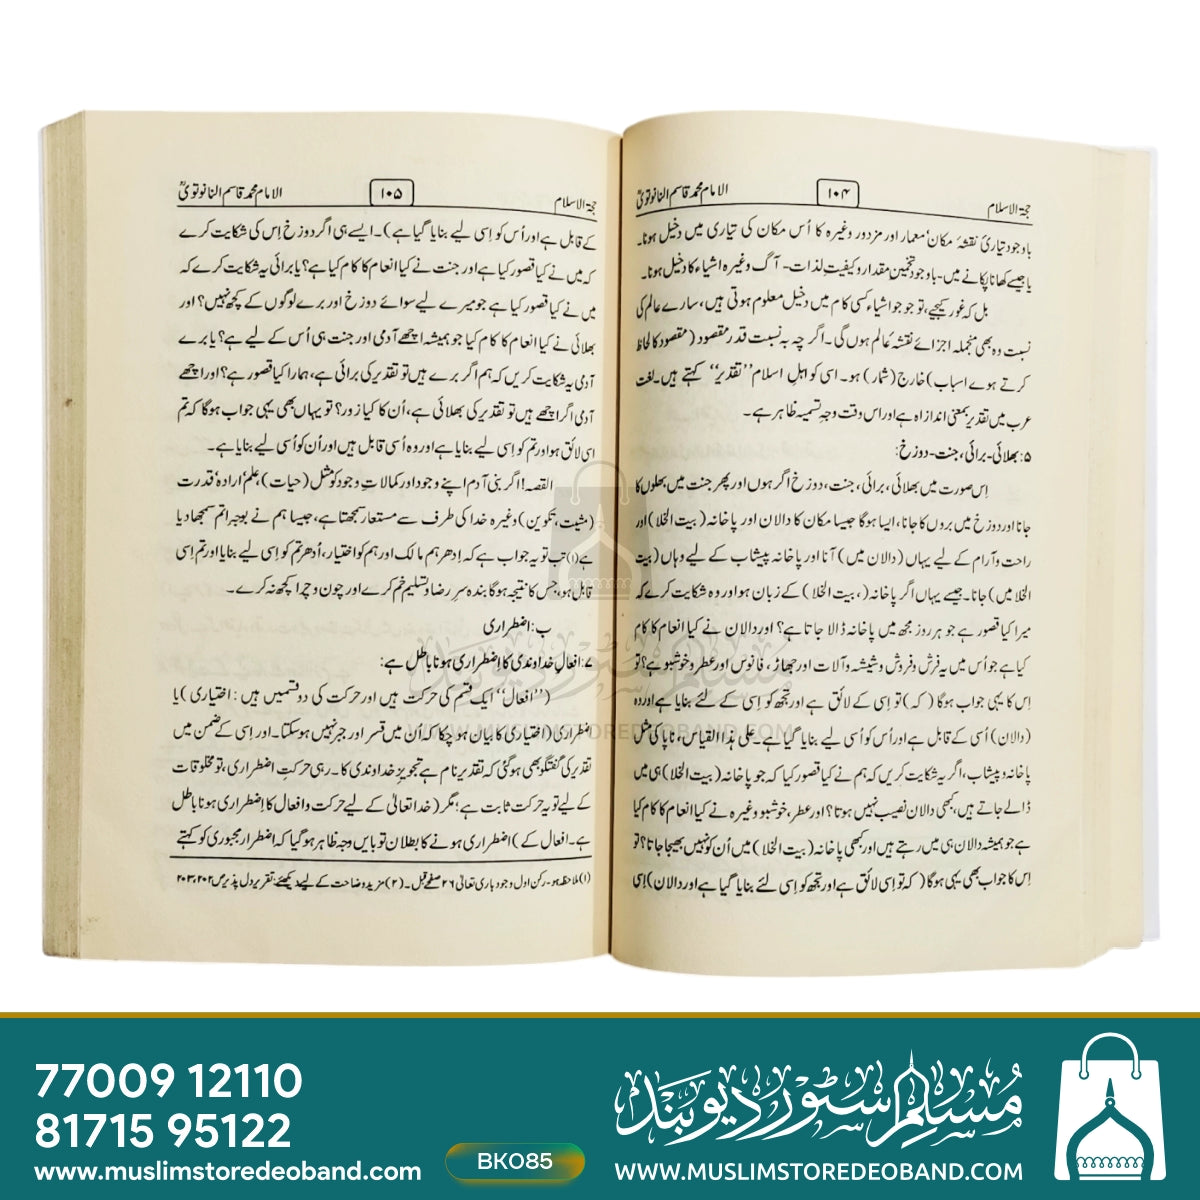 حجۃ الاسلام
۱۰۴
الامام محمد قاسم النانوتویؒ
باوجود تیاریٔ نقشۂ مکان، معمار اور مزدور وغیرہ کا اُس مکان کی تیاری میں دخیل ہونا۔
یا جیسے کھانا پکانے میں - باوجود تخمینِ مقدار و کیفیتِ لذات - آگ وغیرہ اشیاء کا دخیل ہونا۔
بل کہ غور کیجیے، تو جو جو اشیاء کسی کام میں دخیل معلوم ہوتی ہیں، سارے عالم کی
نسبت وہ بھی منجملہ اجزائے نقشۂ عالم ہوں گی۔ اگر چہ بہ نسبت قدر مقصود (مقصود کا لحاظ
کرتے ہوے اسباب) خارج (شمار) ہو۔ اسی کو اہلِ اسلام ”تقدیر“ کہتے ہیں۔ لغت
عرب میں تقدیر بمعنی اندازہ ہے اور اس وقت وجہِ تسمیہ ظاہر ہے۔
۵: بھلائی - برائی، جنت - دوزخ:
اِس صورت میں بھلائی، برائی، جنت، دوزخ اگر ہوں اور پھر جنت میں بھلوں کا
جانا اور دوزخ میں بروں کا جانا، ایسا ہوگا جیسا مکان کا دالان اور پاخانہ (بیت الخلا) اور
راحت و آرام کے لیے یہاں (دالان میں) آنا اور پاخانہ پیشاب کے لیے وہاں (بیت
الخلا میں) جانا۔ جیسے یہاں اگر پاخانہ (، بیت الخلا) کے زبان ہو اور وہ شکایت کرے کہ
میرا کیا قصور ہے جو ہر روز مجھ میں پاخانہ ڈالا جاتا ہے؟ اور دالان نے کیا انعام کا کام
کیا ہے جو اُس میں یہ فرش و فروش و شیشہ و آلات اور جھاڑ، فانوس اور عطر و خوشبو ہے؟ تو
اِس کا یہی جواب ہوگا (کہ) تو اِسی کے لائق ہے اور تجھ کو اِسی کے لئے بنایا ہے اور وہ
(دالان) اُسی کے قابل ہے اور اُس کو اُسی لیے بنایا گیا ہے۔ علی ہذا القیاس، ناپا کی مثل
پاخانہ و پیشاب، اگر یہ شکایت کریں کہ ہم نے کیا قصور کیا کہ جو پاخانہ (بیت الخلا) ہی میں
ڈالے جاتے ہیں، کبھی دالان نصیب نہیں ہوتا؟ اور عطر، خوشبو وغیرہ نے کیا انعام کا کام کیا
ہے جو ہمیشہ دالان ہی میں رہتے ہیں اور کبھی پاخانہ (بیت الخلا) میں اُن کو نہیں بھیجا جاتا؟ تو
اِس کا جواب بھی یہی ہوگا (کہ تو اِسی لائق ہے اور تجھ کو اِسی لئے بنایا گیا ہے اور دالان) اِسی
حجۃ الاسلام
۱۰۵
الامام محمد قاسم النانوتویؒ
کے قابل ہے اور اُس کو اِسی لیے بنایا گیا ہے)۔ ایسے ہی اگر دوزخ اِس کی شکایت کرے
کہ میں نے کیا قصور کیا ہے اور جنت نے کیا انعام کا کام کیا ہے؟ یا برائی یہ شکایت کرے کہ
میں نے کیا قصور کیا ہے جو میرے لیے سوائے دوزخ اور برے لوگوں کے کچھ نہیں؟ اور
بھلائی نے کیا انعام کا کام کیا جو ہمیشہ اچھے آدمی اور جنت ہی اُس کے لیے ہے؟ یا برے
آدمی یہ شکایت کریں کہ ہم اگر برے ہیں تو تقدیر کی برائی ہے، ہمارا کیا قصور ہے؟ اور اچھے
آدمی اگر اچھے ہیں تو تقدیر کی بھلائی ہے، اُن کا کیا زور؟ تو یہاں بھی یہی جواب ہوگا کہ تم
اسی لائق ہو اور تم کو اِسی لیے بنایا ہے اور وہ اُسی قابل ہیں اور اُن کو اُسی لیے بنایا ہے۔
القصہ! اگر بنی آدم اپنے وجود اور کمالاتِ وجود کو مثل (حیات)، علم، ارادہ، قدرت
(مشیت، تکوین) وغیرہ خدا کی طرف سے مستعار سمجھتا ہے، جیسا ہم نے بوجہ اتم سمجھا دیا
ہے (۱) تب تو یہ جواب ہے کہ اِدھر ہم مالک اور ہم کو اختیار، اُدھر تم کو اِسی لیے بنایا اور تم اِسی
قابل ہو، جس کا نتیجہ یہ ہوگا بندہ سرِ رضا و تسلیم خم کرے اور چون و چرا کچھ نہ کرے۔
ب: اضطراری
۷: افعالِ خداوندی کا اِضطراری ہونا باطل ہے:
(”افعال“ ایک قسم کی حرکت ہیں اور حرکت کی دو قسمیں ہیں: اختیاری) یا
اضطراری (اختیاری کا بیان ہو چکا کہ اُن میں قسر اور جبر نہیں ہوسکتا۔ اور اِسی کے ضمن میں
تقدیر کی گفتگو بھی ہو گئی کہ تقدیر نام ہے تجویزِ خداوندی کا۔ رہی حرکتِ اضطراری، تو مخلوقات
کے لیے تو یہ حرکت ثابت ہے؛ مگر (خدا تعالیٰ کے لیے حرکت و افعال کا اِضطراری ہونا باطل
ہے۔ افعال کے) اضطراری ہونے کا بطلان تو بایں وجہ ظاہر ہو گیا کہ اضطرار مجبوری کو کہتے
(۱) ملاحظہ ہو - رکن اول وجود باری تعالیٰ ۲۶ صفحے قبل۔ (۲) مزید وضاحت کے لیے دیکھئے: تقریر دل پذیر ص ۲۰۲، ۲۰۳
مسلم سٹور دیوبند
WWW.MUSLIMSTOREDEOBAND.COM
77009 12110
81715 95122
www.muslimstoredeoband.com
BK085
مسلم سٹور دیوبند
WWW.MUSLIMSTOREDEOBAND.COM